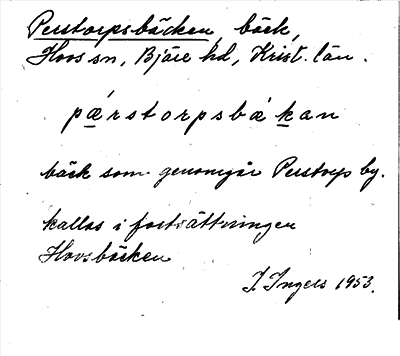 Perstorpsbäcken, bäck,
Hovs sn, Bjäre hd, Krist. län.
pǽrstorpsbä́kan
bäck som genomgår Perstorps by.
kallas i fortsättningen
Hovsbäcken
I. Ingers 1953.